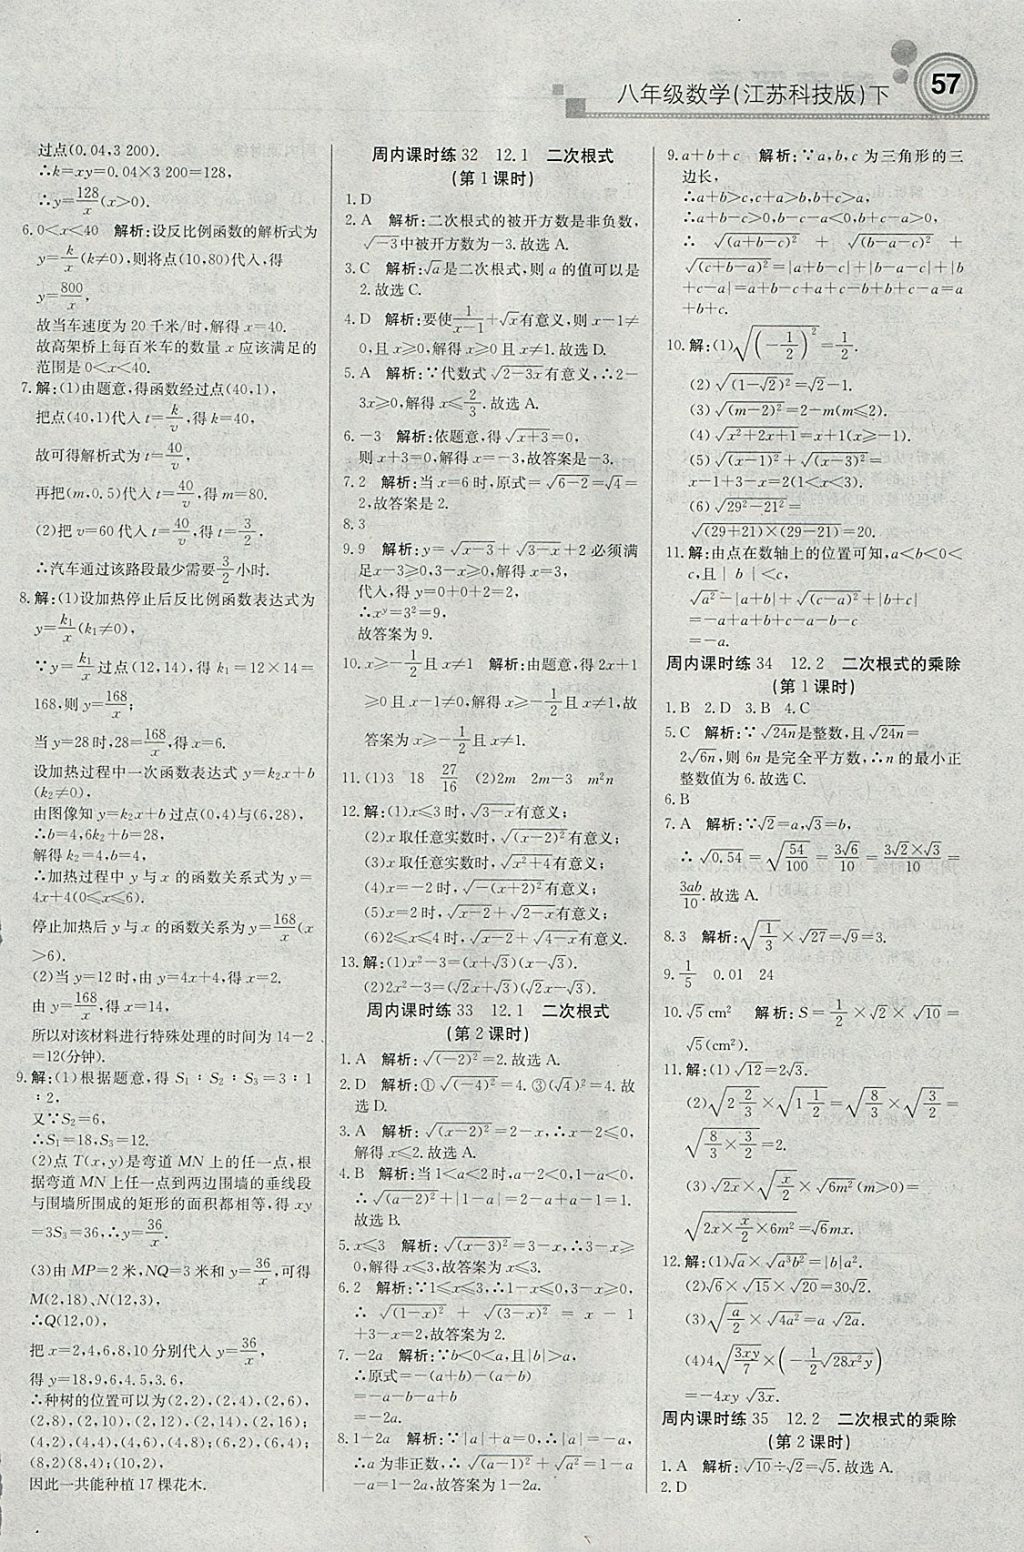 八年级数学(江苏科技版)下
57
过点(0.04,3 200).
∴k=xy=0.04×3 200=128,
∴y=128/x(x>0).
6.0<x<40 解析:设反比例函数的解析式为
y=k/x(k≠0),则将点(10,80)代入,得
y=800/x,
故当车速度为20千米/时,解得x=40.
故高架桥上每百米车的数量x应该满足的
范围是0<x<40.
7.解:(1)由题意,得函数经过点(40,1),
把点(40,1)代入t=k/v,得k=40,
故可得解析式为t=40/v,
再把(m,0.5)代入t=40/v,得m=80.
(2)把v=60代入t=40/v,得t=2/3,
∴汽车通过该路段最少需要2/3小时.
8.解:(1)设加热停止后反比例函数表达式为
y=k₁/x(k₁≠0),
∵y=k₁/x过点(12,14),得k₁=12×14=
168,则y=168/x;
当y=28时,28=168/x,得x=6.
设加热过程中一次函数表达式y=k₂x+b
(k₂≠0),
由图像知y=k₂x+b过点(0,4)与(6,28),
∴b=4,6k₂+b=28,
解得k₂=4,b=4,
∴加热过程中y与x的函数关系式为y=
4x+4(0≤x≤6).
停止加热后y与x的函数关系为y=168/x(x
>6).
(2)当y=12时,由y=4x+4,得x=2.
由y=168/x,得x=14,
所以对该材料进行特殊处理的时间为14-2
=12(分钟).
9.解:(1)根据题意,得S₁∶S₂∶S₃=3∶1
∶2,
又∵S₂=6,
∴S₁=18,S₃=12.
(2)点T(x,y)是弯道MN上的任一点,根
据弯道MN上任一点到两边围墙的垂线段
与围墙所围成的矩形的面积都相等,得xy
=3S₃=36,∴y=36/x.
(3)由MP=2米,NQ=3米和y=36/x,可得
M(2,18)、N(12,3),
∴Q(12,0),
把x=2,4,6,8,10分别代入y=36/x,
得y=18,9,6,4.5,3.6,
∴种树的位置可以为(2,2),(2,4),(2,6),
(2,8),(2,10),(2,12),(2,14),(2,16);
(4,2),(4,4),(4,6),(4,8);(6,2),(6,4);
(8,2)(8,4);(10,2),
因此一共能种植17棵花木.
周内课时练32 12.1 二次根式
(第1课时)
1.D
2.A 解析:二次根式的被开方数是非负数,
√-3中被开方数为-3.故选A.
3.C 解析:√a是二次根式,则a的值可以是
2.故选C.
4.D 解析:要使1/(x-1)+√x有意义,则x-1≠
0,且x≥0,解得x≥0且x≠1.故选D.
5.A 解析:∵代数式√(2-3x)有意义,∴2-
3x≥0,解得x≤2/3.故选A.
6.-3 解析:依题意,得√(x+3)=0,
则x+3=0,解得x=-3.故答案是-3.
7.2 解析:当x=6时,原式=√(6-2)=√4=
2.故答案是2.
8.3
9.9 解析:y=√(x-3)+√(3-x)+2必须满
足x-3≥0,3-x≥0,解得x=3,
代入,得y=0+0+2=2,
∴xʸ=3²=9,
故答案为9.
10.x≥-1/2且x≠1 解析:由题意,得2x+1
≥0且x-1≠0,解得x≥-1/2且x≠1,故
答案为x≥-1/2且x≠1.
11.(1)3 18 27/16 (2)2m 2m-3 m²n
12.解:(1)x≤3时,√(3-x)有意义;
(2)x取任意实数时,√((x-2)²)有意义;
(3)x取任意实数时,√(x²+4)有意义;
(4)x=-2时,√(-(x+2)²)有意义;
(5)x=2时,√(x-2)+√(2-x)有意义;
(6)2≤x≤4时,√(x-2)+√(4-x)有意义.
13.解:(1)x²-3=(x+√3)(x-√3).
(2)2x²-3=(√2x+√3)(√2x-√3).
周内课时练33 12.1 二次根式
(第2课时)
1.A 解析:√((-2)²)=2.故选A.
2.D 解析:①√((-4)²)=4.③(√4)²=4.故
选D.
3.A 解析:√((x-2)²)=2-x,∴x-2≤0,
解得x≤2.故选A.
4.B 解析:当1<a<2时,a-2<0,1-a<0,
∴√((a-2)²)+|1-a|=2-a+a-1=1.
故选B.
5.x≤3 解析:√((x-3)²)=3-x,∴3-x≥
0,解得x≤3,故答案为x≤3.
6.2 解析:∵1≤x≤3,∴1-x≤0,3-x≥0,
∴√((1-x)²)+√((3-x)²)=x-1
+3-x=2,故答案为2.
7.-2a 解析:∵b<0<a,且|b|>a,
∴原式=-(a+b)-(a-b)
=-a-b-a+b
=-2a.
8.1-2a 解析:∵|a|+a=0,∴|a|=-a,
∴a为非正数,∴√((a-1)²)+√a²=1-a
-a=1-2a.故答案为1-2a.
9.a+b+c 解析:∵a,b,c为三角形的三
边长,
∴a+b>c,c+a>b,b+c>a,
∴a+b-c>0,b-c-a<0,b+c-a>0,
∴√((a+b-c)²)+√((b-a-c)²)+
√((c+b-a)²)=|a+b-c|+|b-a-c|+|b
+c-a|=a+b-c+a+c-b+b+c-a=a
+b+c.
10.解:(1)√((-1/2)²)=1/2.
(2)√((1-√2)²)=√2-1.
(3)√((m-2)²)=2-m(m≤2).
(4)√(x²+2x+1)=x+1(x≥-1).
(5)√((x-1)²)+√((x-3)²)=
x-1+3-x=2(1<x<3).
(6)√(29²-21²)=
√((29+21)×(29-21))=20.
11.解:由点在数轴上的位置可知,a<b<0<
c,且|b|<c,
√a²-|a+b|+√((c-a)²)+|b+c|
=-a+a+b+c-a-b-c
=-a.
周内课时练34 12.2 二次根式的乘除
(第1课时)
1.B 2.D 3.B 4.C
5.C 解析:∵√(24n)是整数,且√(24n)=
2√(6n),则6n是完全平方数,∴n的最小正
整数值为6.故选C.
6.B
7.A 解析:∵√2=a,√3=b,
∴√0.54=√(54/100)=3√6/10=3√2×√3/10=
3ab/10.故选A.
8.3 解析:√(1/3)×√27=√9=3.
9.1/5 0.01 24
10.√5 cm² 解析:S=1/2×√2×√10=
√5(cm²)
11.解:(1)√12=2√3.
(2)√(2 2/3)×√(1 1/2)=√(8/3)×√(3/2)=
√(8/3×3/2)=2.
(3)√(2x)×√(x/2)×√(6m²)(m>0)=
√(2x×x/2×6m²)=√6mx.
12.解:(1)√a×√(a³b²)=|b|a².
(2)√6×√15×√20=30√2.
(3)√(a/2)×√(4a²)=a√(2a).
(4)4√(3xy/7)×(-1/2√(28x²y))
=-4xy√(3x).
周内课时练35 12.2 二次根式的乘除
(第2课时)
1.A 解析:√10÷√2=√5.故选A.
2.D